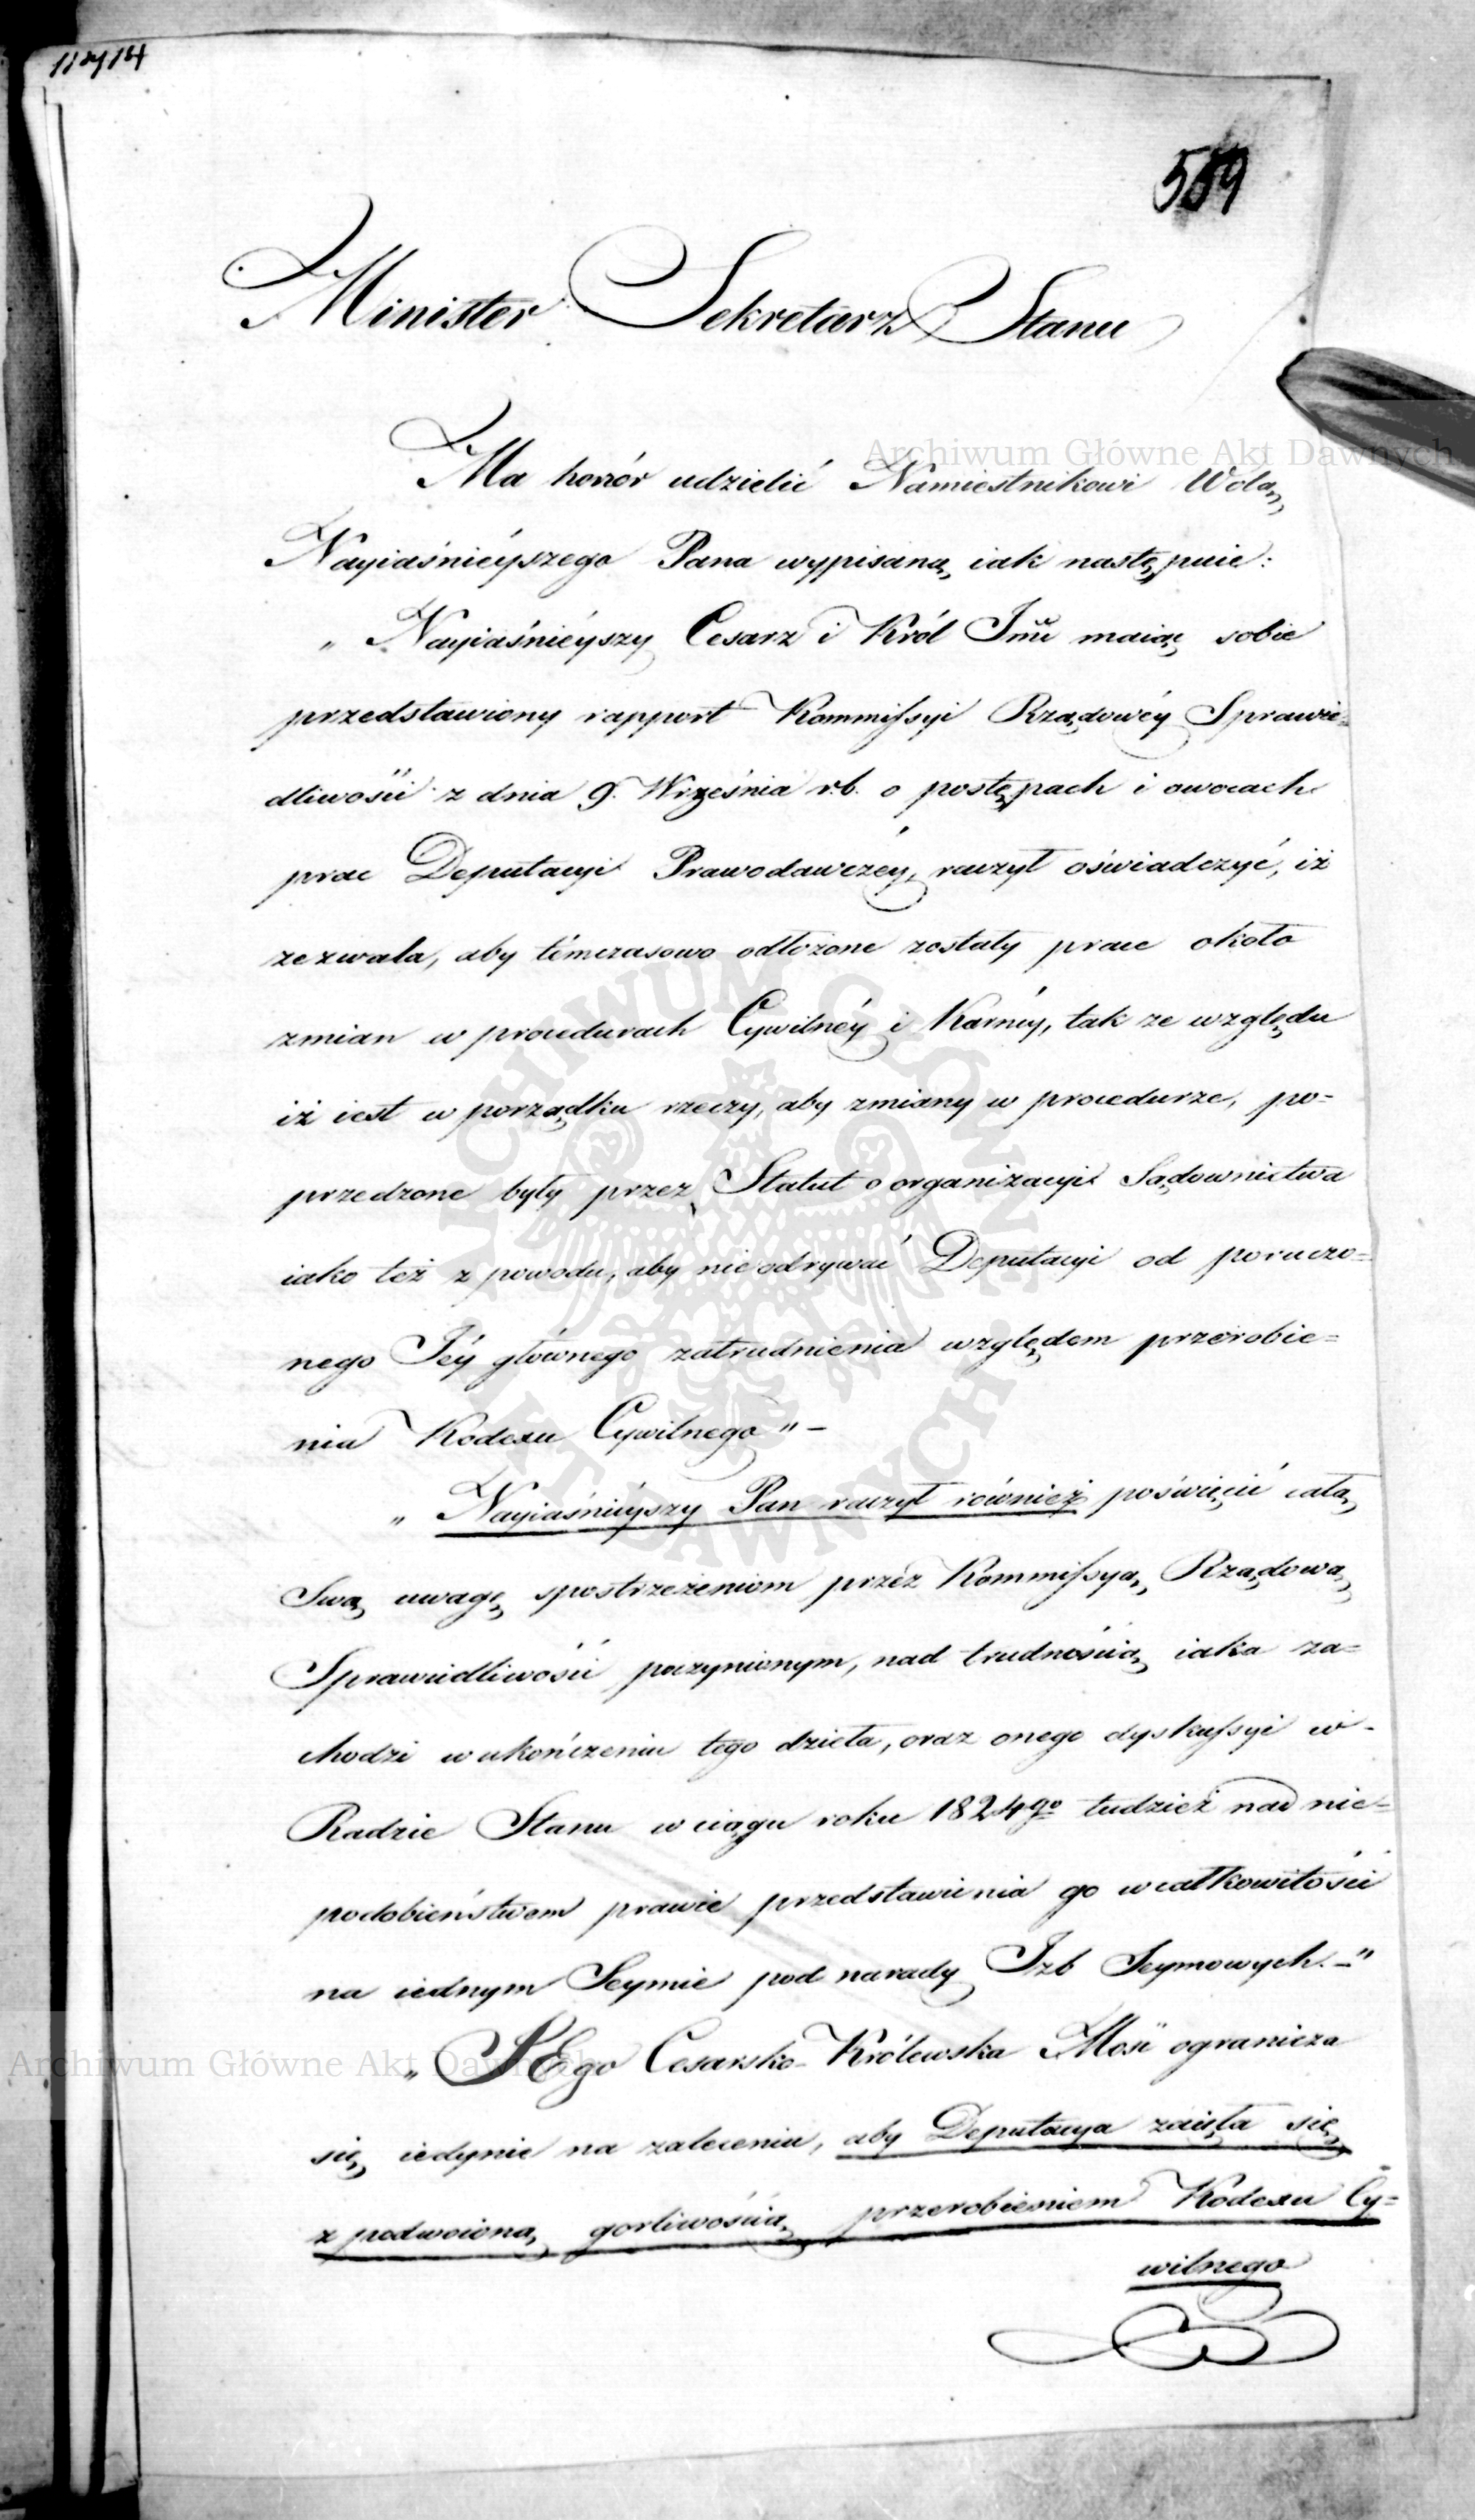 589
Minister Sekretarz Stanu
Archiwum Główne Akt Dawnych
Ma honór udzielić Namiestnikowi Wolą
Nayiaśnieyszego Pana wypisaną, iak następuie:
„Nayiaśnieyszy Cesarz i Król Jmć maiąc sobie
przedstawiony rapport Kommissyi Rządowéy Sprawie=
dliwości z dnia 9. Września r.b. o postępach i owocach
prac Deputacyi Prawodawczéy, raczył oświadczyć, iż
zezwala, aby témczasowo odłożone zostały prace około
zmian w procedurach Cywilnéy i Karnéy, tak ze względu
iż iest w porządku rzeczy, aby zmiany w procedurze, po=
przedzone były przez Statut o organizacyi Sądownictwa
iako też z powodu, aby nieodrywać Deputacyi od poruczo=
nego Jéy głównego zatrudnienia względem przerobie=
nia Kodexu Cywilnego"–
„Nayiaśnieyszy Pan raczył również poświęcić całą
Swą uwagę spostrzeżeniom przez Kommissyą Rządową
Sprawiedliwości poczynionym, nad trudnością iaka za=
chodzi w ukończeniu tego dzieła, oraz onego dyskussyi w
Radzie Stanu w ciągu roku 1824go tudzież nad nie=
podobieństwem prawie przedstawienia go w całkowitości
na iednym Seymie pod narady Izb Seymowych.–"
„JEgo Cesarsko-Królewska Mość ogranicza
Archiwum Główne Akt Dawnych
się iedynie na zaleceniu, aby Deputacya zaięła się
z podwoioną gorliwością przerobieniem Kodexu Cy=
wilnego
ARCHIWUM GŁÓWNE AKT DAWNYCH